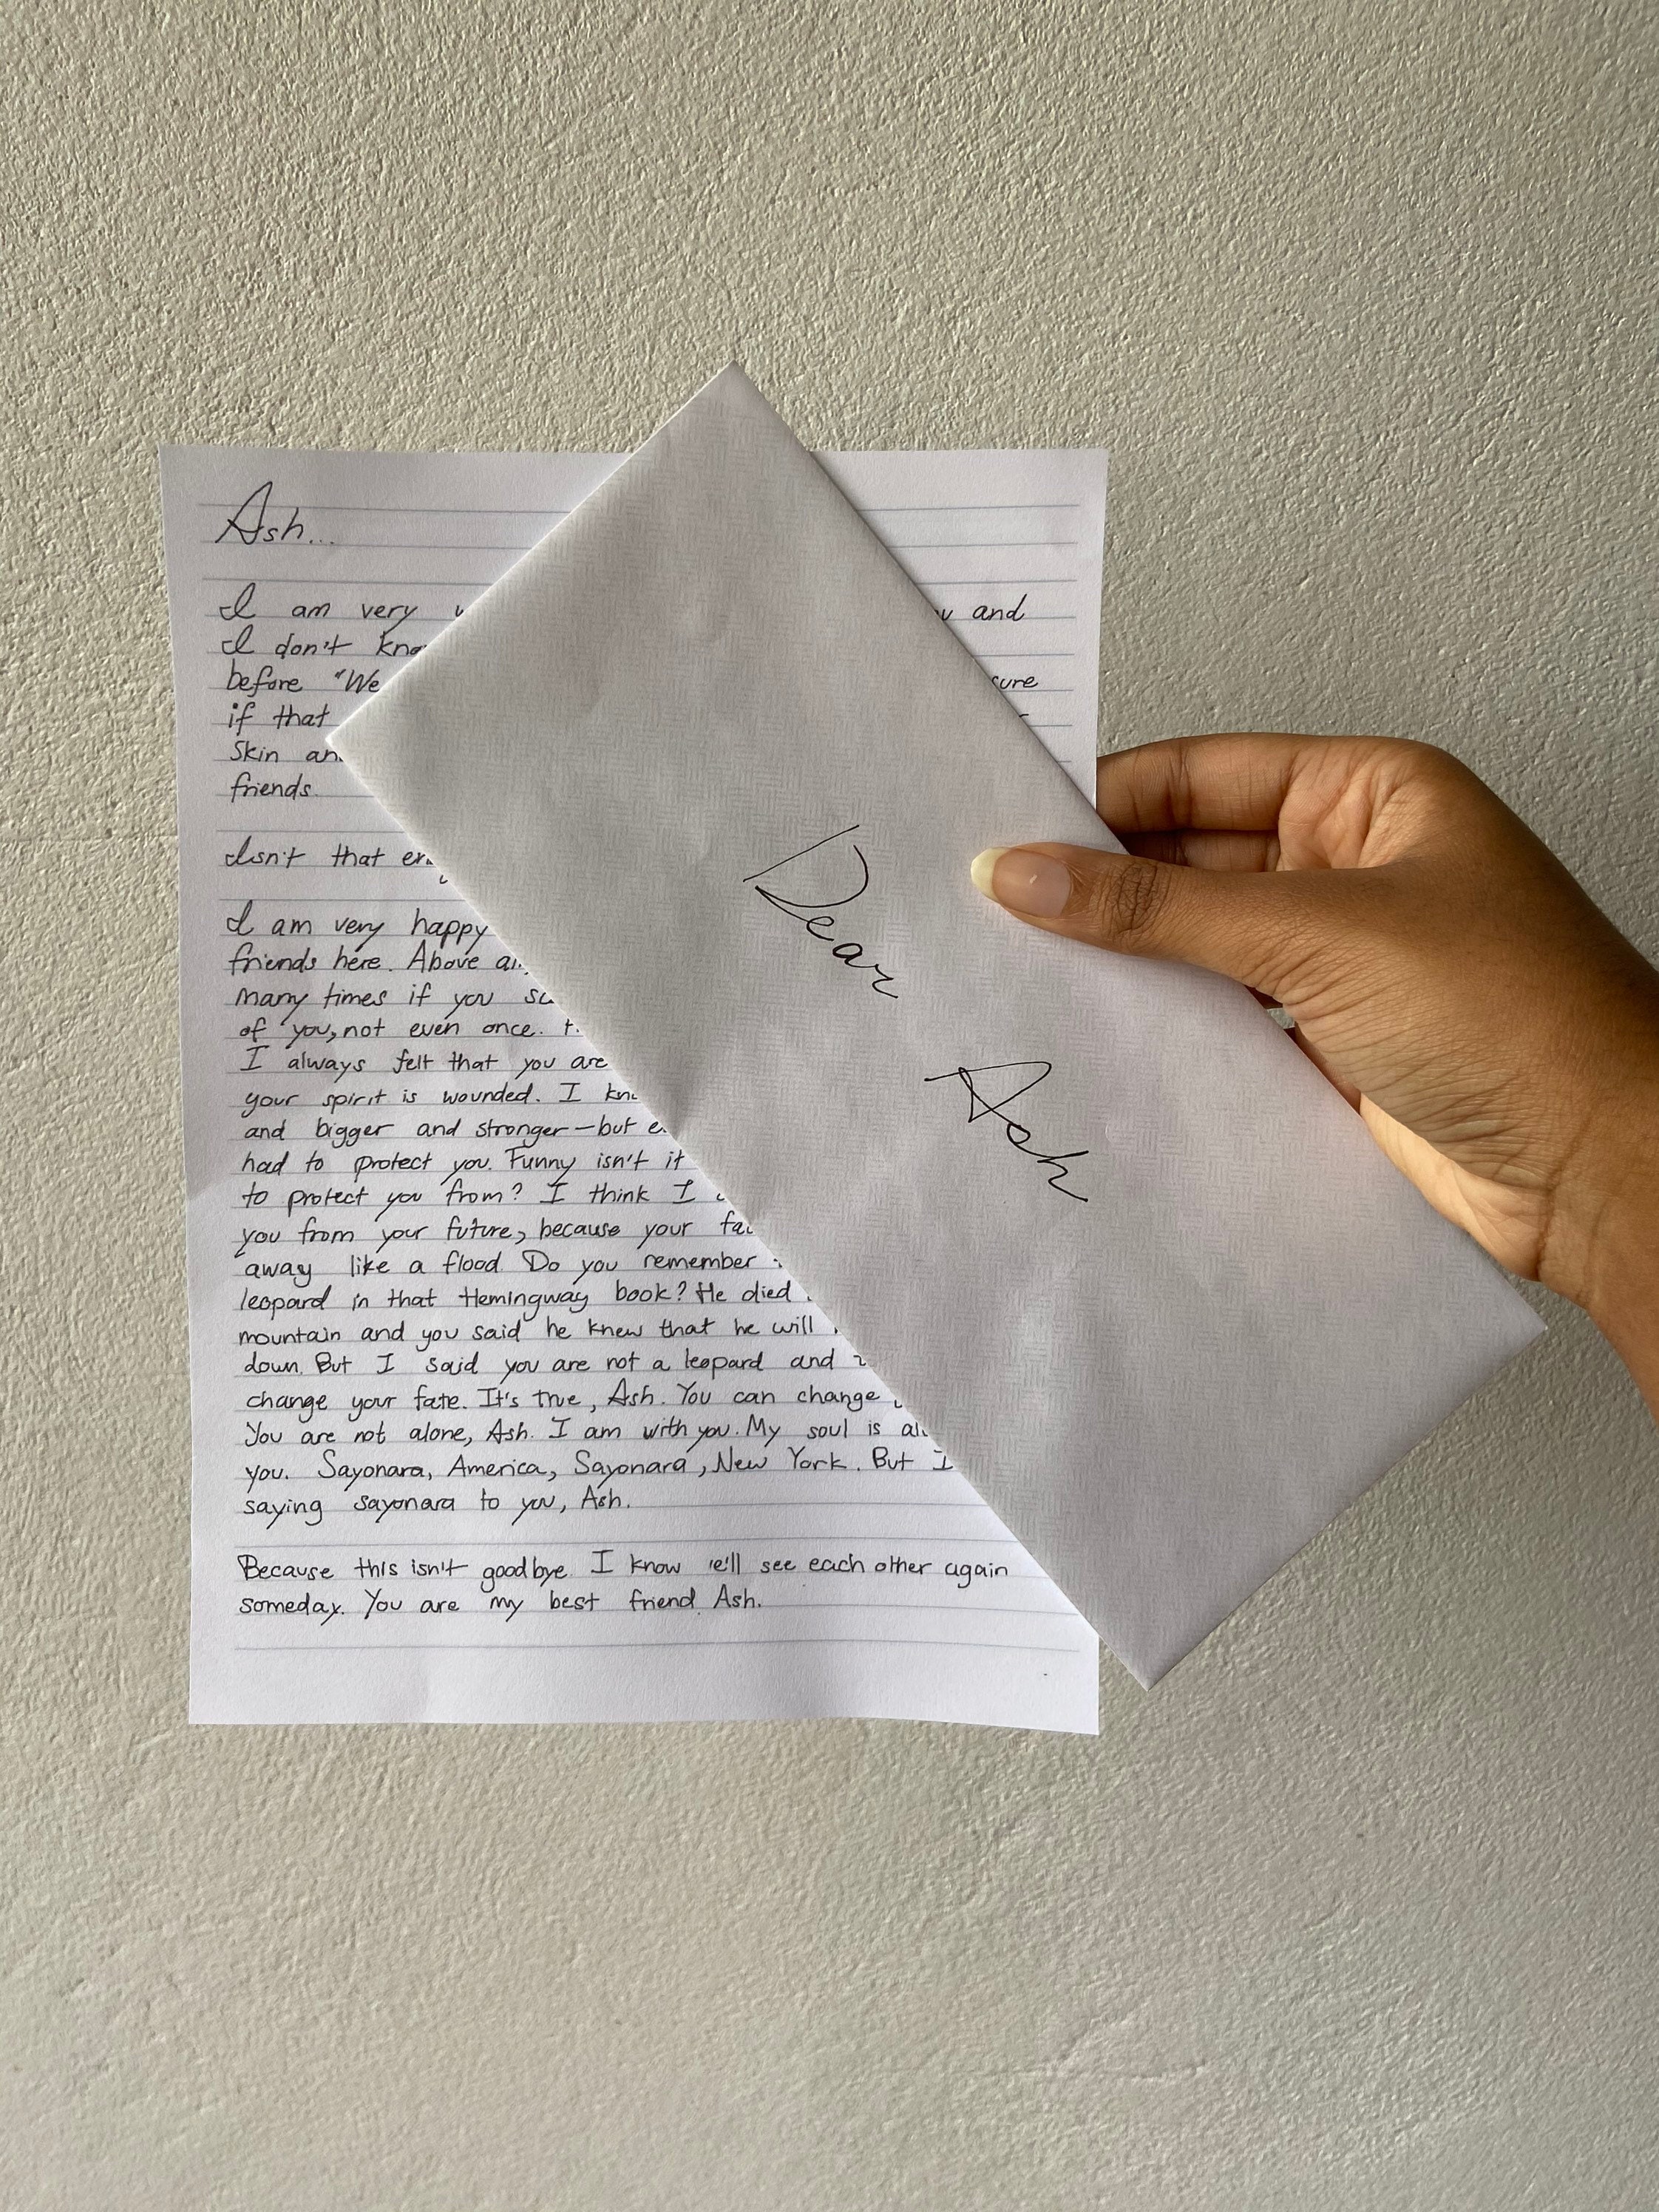 Ash...
I am very and
I don't
before "We sure
if that
Skin
friends.
Isn't that
I am very happy
friends here. Above
many times if you
of you, not even once.
I always felt that you are
your spirit is wounded. I
and bigger and stronger—but
had to protect you. Funny isn't it
to protect you from? I think I
you from your future, because your
away like a flood. Do you remember
leopard in that Hemingway book? He died
mountain and you said he knew that he will
down. But I said you are not a leopard and
change your fate. It's true, Ash. You can change
You are not alone, Ash. I am with you. My soul is
you. Sayonara, America, Sayonara, New York. But I
saying sayonara to you, Ash.
Because this isn't goodbye. I know e'll see each other again
someday. You are my best friend, Ash.
Dear Ash